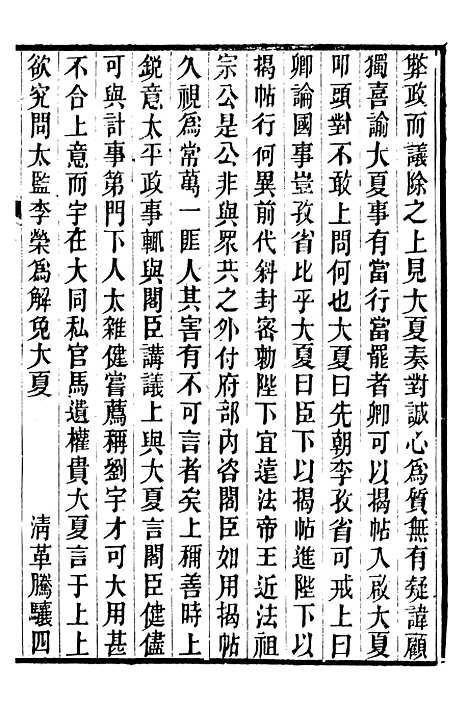 弊政而議除之上見大夏奏對誠心為質無有疑諱顧
獨喜諭大夏事有當行當罷者卿可以揭帖入啟大夏
叩頭對不敢上問何也大夏曰先朝李孜省可戒上曰
卿論國事豈孜省比乎大夏曰臣下以揭帖進陛下以
揭帖行何異前代斜封密勅陛下宜遠法帝王近法祖
宗公是公非與眾共之外付府部內咨閣臣如用揭帖
久視為常萬一匪人其害有不可言者矣上稱善時上
銳意太平政事輒與閣臣講議上與大夏言閣臣健儘
可與計事第門下人太雜健嘗薦稱劉宇才可大用甚
不合上意而宇在大同私官馬遺權貴大夏言于上上
欲究問太監李榮為解免大夏　清革騰驤四